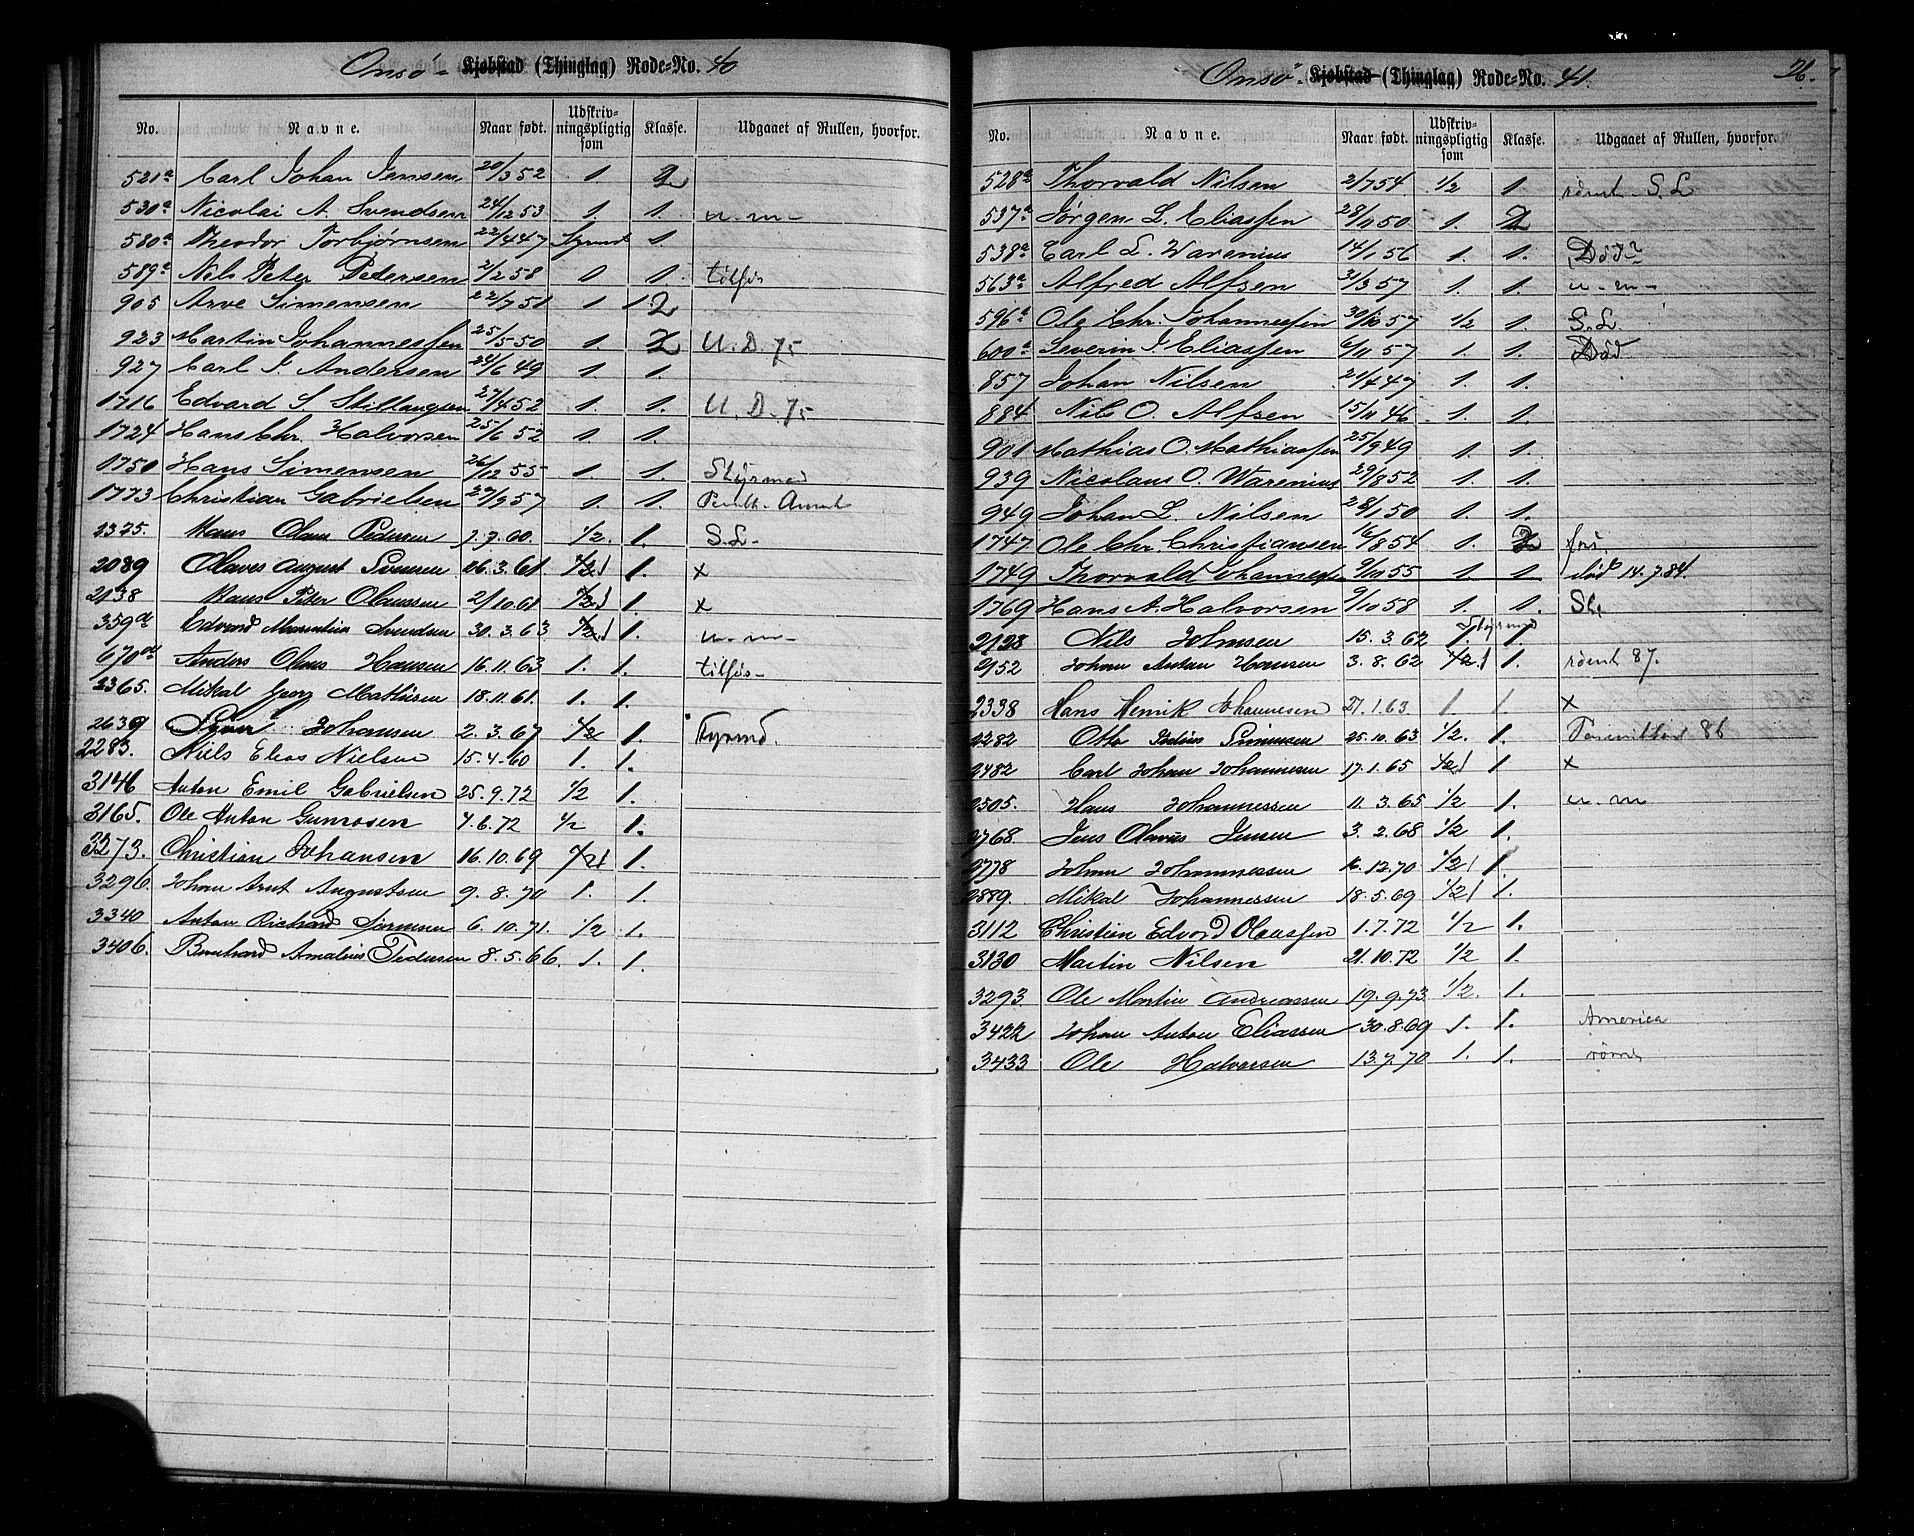 Onsö - Kjøbstad (Thinglag) Rode-No. 40
No. Navne. Naar født. Udskriv-ningspligtig som Klasse. Udgaaet af Rullen, hvorfor.
521a Carl Johan Jensen 20/3 52 1 2
530a Nicolai A. Svendsen 24/12 53 1. 1. u. m -
580a Theodor Torbjørnsen 22/4 47 Styrmd 1.
589a Nils Peter Pedersen 2/2 58 1 1. tilfös
905 Arve Simensen 22/7 51 1 1 2
923 Martin Johannessen 25/5 50 1. 2 U. D. 75
927 Carl J. Andersen 24/6 49 1. 1.
1716 Edvard S Stillaugsen 27/4 52 1. 1. U. D. 75
1724 Hans Chr. Halvorsen 25/6 52 1. 1.
1750 Hans Simensen 26/12 55 1. 1. Styrmd
1773 Christian Gabrielsen 27/9 57 1. 1.
2375. Hans Olaus Pedersen 7.9.60. 1/2. 1. S.L-
2089 Olaves August Svensen 06.3.61 1/2 1 1. x
2138 Hans Peter Olaussen 2/10.61 1/2 1 1. x
359a Edvard Martinius Svendsen 30.3.63 1/2 1 1. u. m -
670a Anders Olaus Hansen 16.11.63 1. 1. tilfös -
2365. Mikal Georg Mathisen 18.11.61. 1. 1.
2639 Syver Johansen 2.3.67 1/2 1. Styrmd.
2283. Niels Elias Nielsen 15.4.60 1. 1.
3146 Anton Emil Gabrielsen 25.9.72 1/2 1.
3165. Ole Anton Gunrosen 4.6.72 1/2 1.
3273. Christian Johansen 16.10.69 1/2 1 1.
3296. Johan Arnt Augustsen 9.8.70 1. 1.
3340 Anton Richard Sørensen 6.10.71. 1/2 1.
3406. Bernhard Amalius Pedersen 8.5.66. 1. 1.
Onsö - Kjøbstad (Thinglag) Rode-No. 41. 26.
No. Navne. Naar født. Udskriv-ningspligtig som Klasse. Udgaaet af Rullen, hvorfor.
528a Thorvald Nilsen 2/7 54 1/2 1. römt S. L
537a Jörgen L. Eliassen 28/11 50 1. 2
539a Carl L. Warenius 14/1 56 1. 1. Död
563a Alfred Alfsen 31/3 57 1. 1. u. m -
596a Ole Chr. Johannessen 30/10 57 1/2 1. S. L
600a Severin J. Eliassen 6/11 57 1. 1. Död
857 Johan Nilsen 21/4 47 1. 1.
884 Nils O. Alfsen 15/11 46 1. 1.
901 Mathias O. Mathiassen 25/9 49 1. 1.
939 Nicolaus O. Warenius 29/8 52 1. 1.
949 Johan L. Nilsen 28/1 50 1. 1.
1747 Ole Chr. Christiansen 16/8 54 1. 2
1749 Thorvald Johannessen 9/10 55 1. 1 död 14.7.84.
1769 Hans A. Halvorsen 9/10 58 1. 1. SL
2128 Nils Johnsen 15.3.62 1. Styrmd 1
2152 Johan Anton Hansen 3.8.62 1/2 1 1. römt 87.
2338 Hans Henrik Johannesen 27.1.63 1 1 x
2282 Otto Simensen 25.10.63 1/2. 1.
2482 Carl Johan Johannesen 17.1.65 1/2 1 1 x
2505. Hans Johannessen 11.3.65 1/2 1. u. m
2768 Jens Olavus Jensen 3.2.68 1/2 1.
2778 Johan Johannessen 16.12.70 1/2 1 1.
2889. Mikal Johannessen 18.5.69 1/2 1 1.
3112 Christian Edvard Olaussen 1.7.72 1/2 1.
3130 Martin Nilsen 21.10.72 1/2 1.
3293 Ole Martin Andreassen 19.9.73 1/2. 1.
3422 Johan Anton Eliassen 30.8.69 1. 1. America
3433 Ole Halvorsen 13.7.70 1. 1. römt